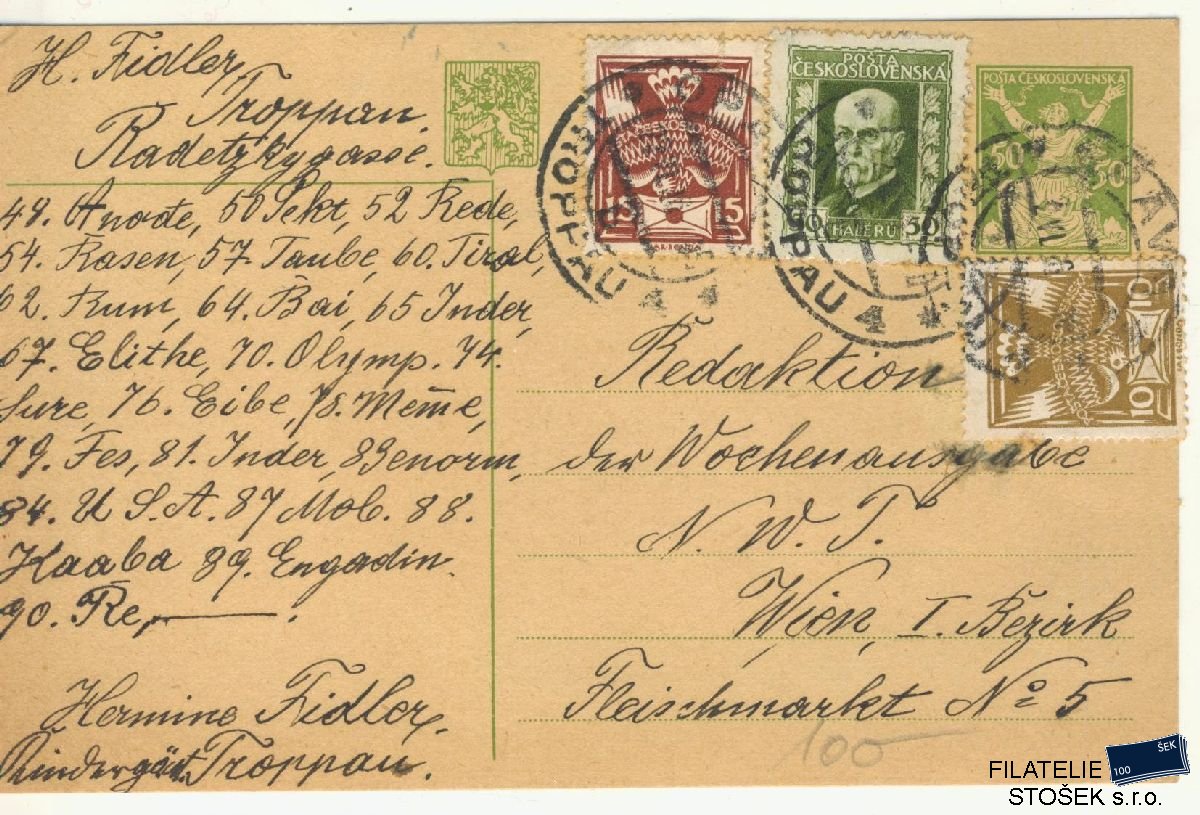 H. Fidler,
Troppau.
Radetzkygasse.
49. Anode, 50 Sekt, 52 Rede,
54. Rasen, 57. Taube, 60. Tirol,
62. Rum, 64. Bai, 65 Inder,
67. Elithe, 70. Olymp. 74.
Sure, 76. Eibe, 78. Mem̄e,
79. Fes, 81. Inder, 83 enorm,
84. U.S.A. 87 Mob. 88.
Kaaba 89. Engadin.
90. Re,
Hermine Fidler,
Troppau.
POŠTA ČESKOSLOVENSKÁ
15 15
POŠTA
ČESKOSLOVENSKÁ
50 HALÉŘŮ 50
POŠTA ČESKOSLOVENSKÁ
50 50
10 10
TROPPAU 4
OPAVA
Redaktion
der Wochenausgabe
N. W. T.
Wien, I. Bezirk
Fleischmarkt No 5
100
FILATELIE
STOŠEK s.r.o.
100 ŠEK